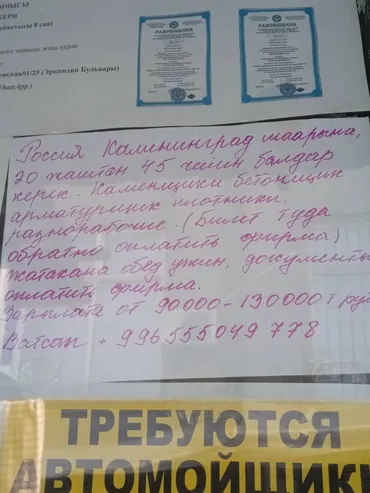 КЕРИ
8 саат
91/29 (Эркиндик Бульвары)
WhatsApp.)
РАЗРЕШЕНИЕ
РАЗРЕШЕНИЕ
Россия Калининград шаарына,
20 жаштан 45 чейин балдар
керек. Каменщики бетонщик
арматурщик плотники,
разнорабочие. (Билет туда
обратно оплатить фирма)
жатакана обед ужин, документы
оплатить фирма.
Зарплата от 90000-130000 т руб
Ватсап + 996555049778
ТРЕБУЮТСЯ
АВТОМОЙЩИКИ